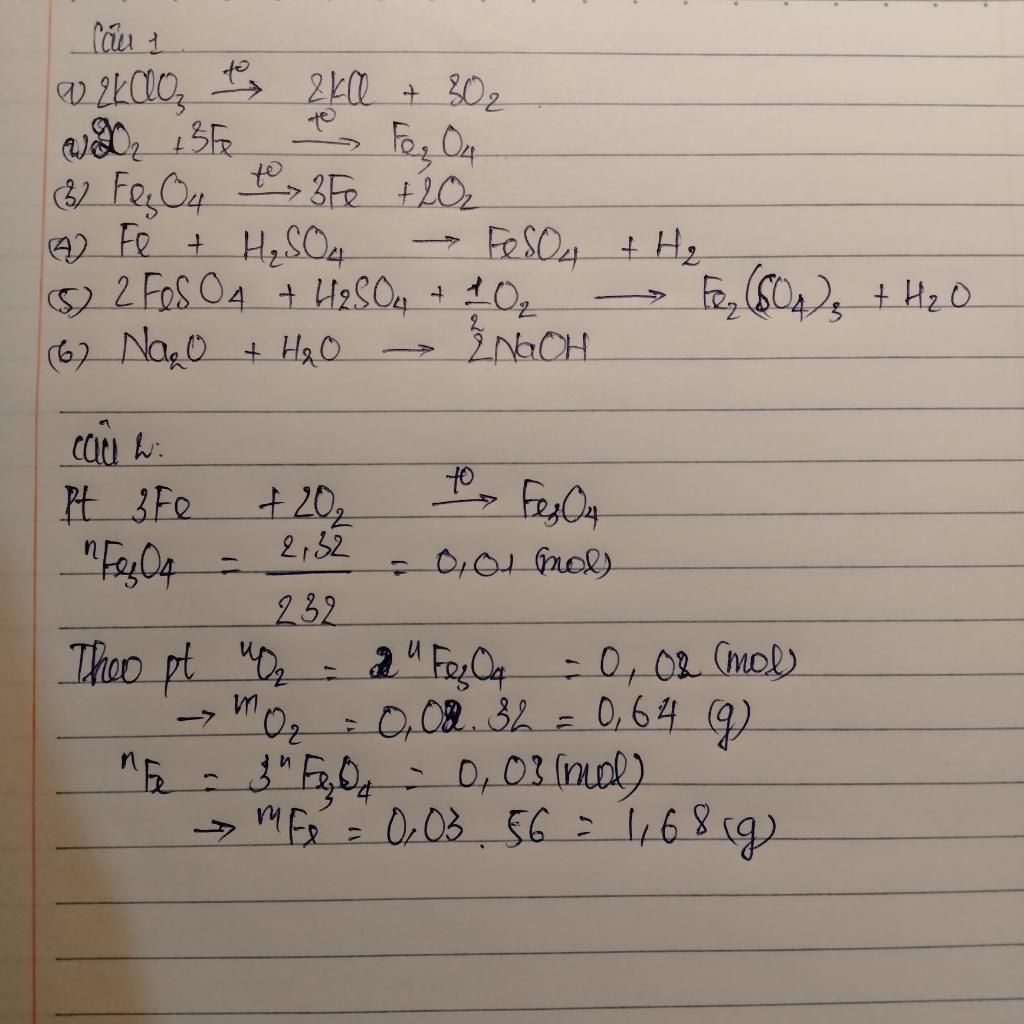 Câu 1
(1) 2KClO₃ –t⁰→ 2KCl + 3O₂
(2) 2O₂ + 3Fe –t⁰→ Fe₃O₄
(3) Fe₃O₄ –t⁰→ 3Fe + 2O₂
(4) Fe + H₂SO₄ → FeSO₄ + H₂
(5) 2FeSO₄ + H₂SO₄ + 1/2 O₂ → Fe₂(SO₄)₃ + H₂O
(6) Na₂O + H₂O → 2NaOH
Câu 2:
Pt 3Fe + 2O₂ –t⁰→ Fe₃O₄
nFe₃O₄ = 2,32/232 = 0,01 (mol)
Theo pt nO₂ = 2nFe₃O₄ = 0,02 (mol)
→ mO₂ = 0,02.32 = 0,64 (g)
nFe = 3nFe₃O₄ = 0,03 (mol)
→ mFe = 0,03.56 = 1,68 (g)